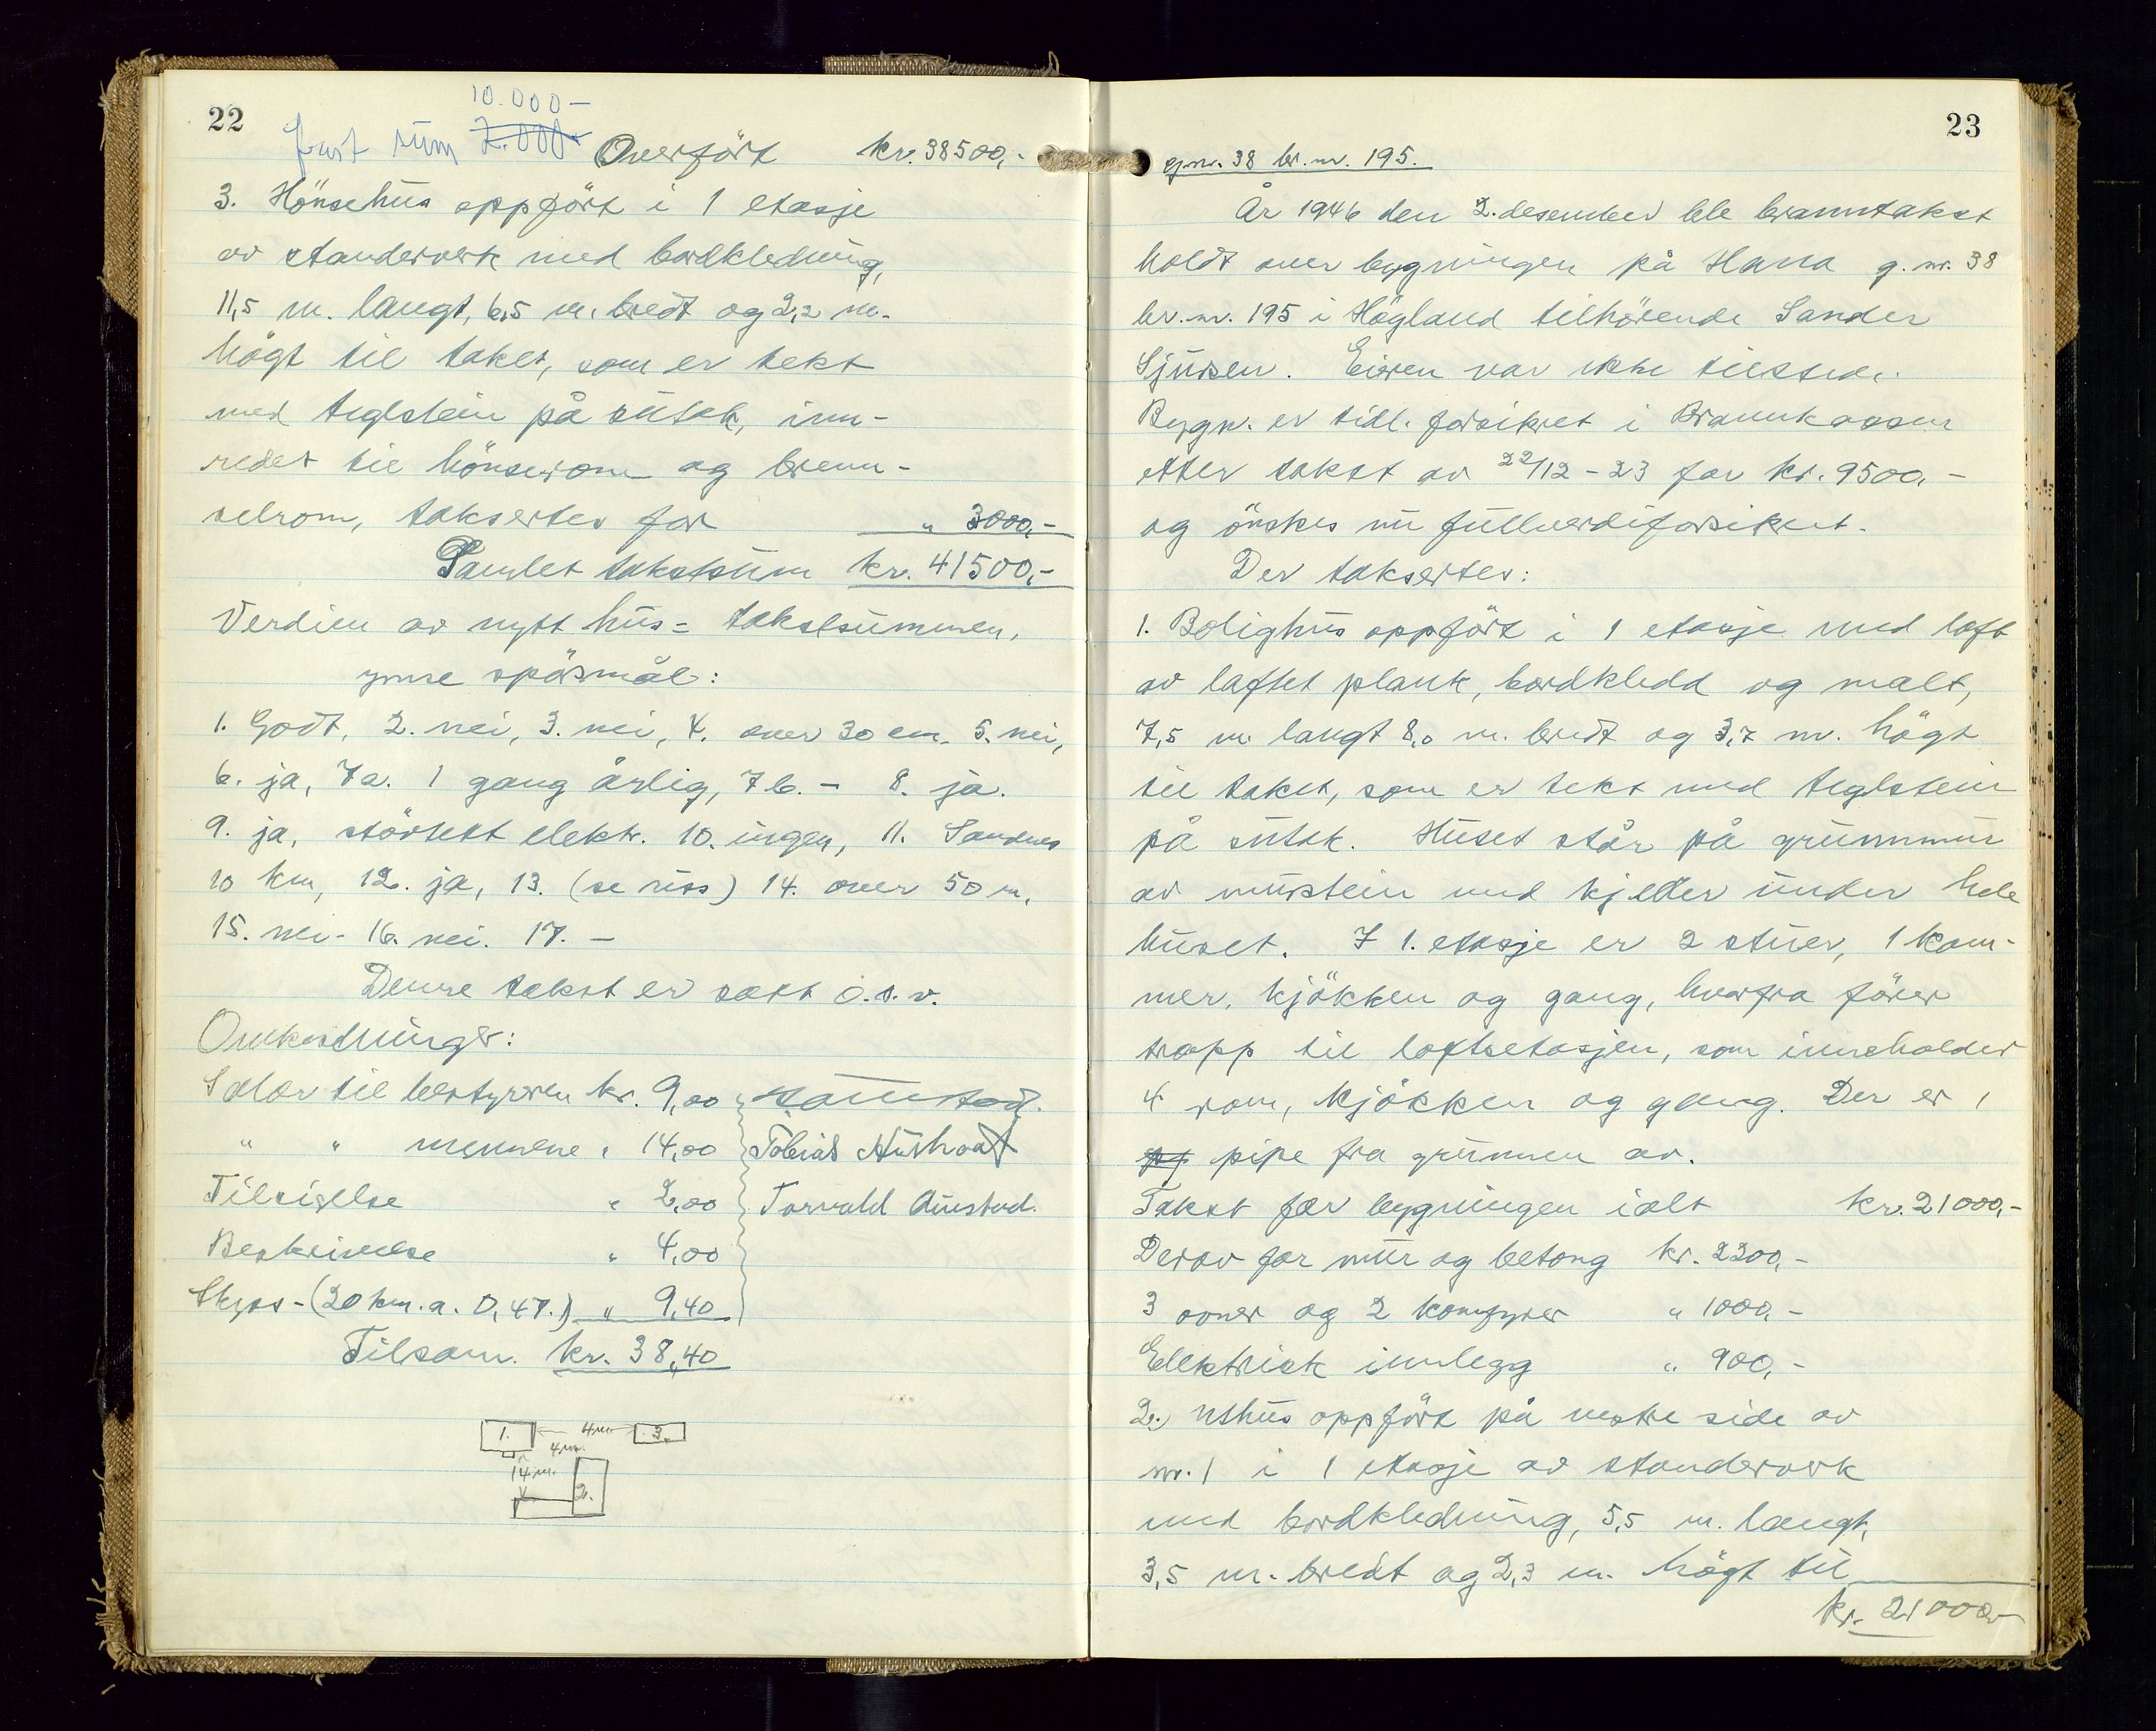 22
10.000-
fast sum 7.000-
Overført kr. 38500,-
3. Hönsehus oppfört i 1 etasje
av standerverk med bordkledning,
11,5 m. langt, 6,5 m. bredt og 2,2 m.
högt til taket, som er tekt
med teglstein på sutak, inn-
redet til hönserom og bren-
selrom, takseres for " 3000,-
Samlet takstsum kr. 41500,-
Verdien av nytt hus = takstsummen.
ymse spörsmål:
1. Godt, 2. nei, 3. nei, 4. over 30 cm. 5. nei,
6. ja, 7a. 1 gang årlig, 7b. - 8. ja.
9. ja, störtekt elektr. 10. ingen, 11. Sandnes
10 km, 12. ja, 13. (se riss) 14. over 50 m,
15. nei - 16. nei. 17. -
Denne takst er satt o.s.v.
Omkostninger:
Salær til bestyreren kr. 9,00
" " mennene " 14,00 Tobias Aushoat
Tilsigelse " 2,00 Torvald Austad.
Beskrivelse " 4,00
Skyss - (20 km. a. 0,47.) " 9,40
Tilsam. kr. 38,40
1. 4 m. 3.
4 m.
14 m.
2.
23
gnr. 38 br. nr. 195.
År 1946 den 2. desember ble branntakst
holdt over bygningen på Hana g. nr. 38
br. nr. 195 i Högland tilhörende Sander
Sjursen. Eieren var ikke tilstede.
Bygn. er tidl. forsikret i Brannkassen
etter takst av 22/12-23 for kr. 9500,-
og önskes nu fullverdiforsikret.
Der takseres:
1. Bolighus oppfört i 1 etasje med loft
av laftet plank, bordkledd og malt,
7,5 m. langt 8,0 m. bredt og 3,7 m. högt
til taket, som er tekt med teglstein
på sutak. Huset står på grunnmur
av murstein med kjeller under hele
huset. I 1. etasje er 2 stuer, 1 kam-
mer, kjökken og gang, hvorfra förer
trapp til loftsetasjen, som inneholder
4 rom, kjökken og gang. Der er 1
pipe fra grunnen av.
Takst for bygningen ialt kr. 21000,-
Derav for mur og betong kr. 2200,-
3 ovner og 2 komfyrer " 1000,-
Elektrisk innlegg " 900,-
2. Uthus oppfört på vestre side av
nr. 1 i 1 etasje av standerverk
med bordkledning, 5,5 m. langt,
3,5 m. bredt og 2,3 m. högt til
kr. 21000,-